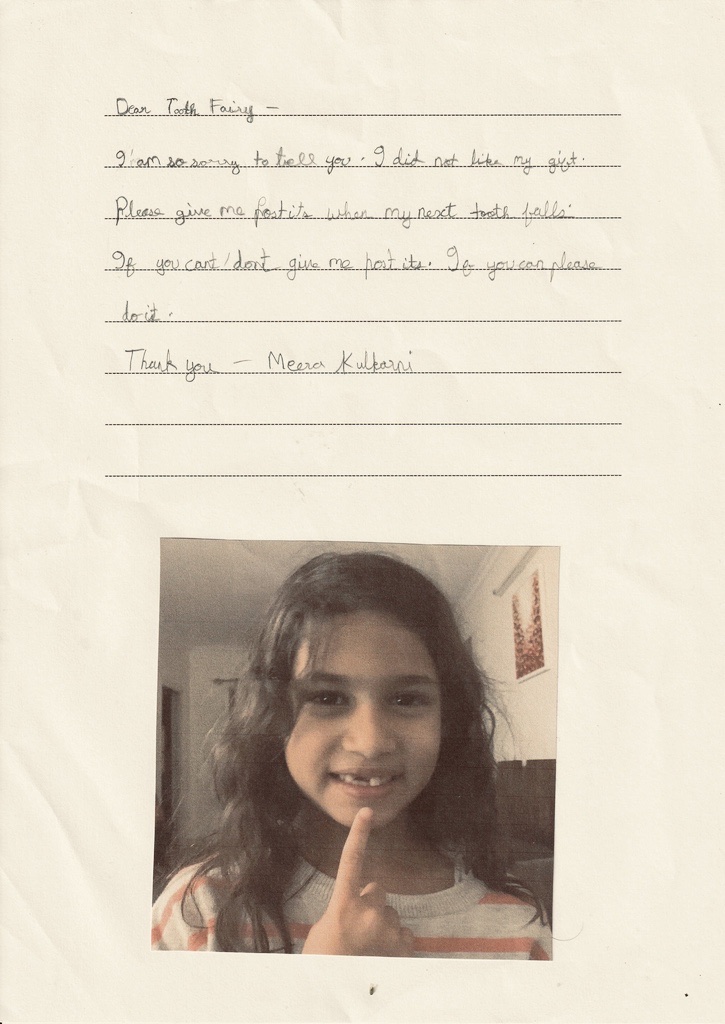 Dear Tooth Fairy —
I'am so sorry to tell you. I did not like my gift.
Please give me postits when my next tooth falls.
If you cant/dont give me post its. If you can please
do it.
Thank you — Meera Kulkarni